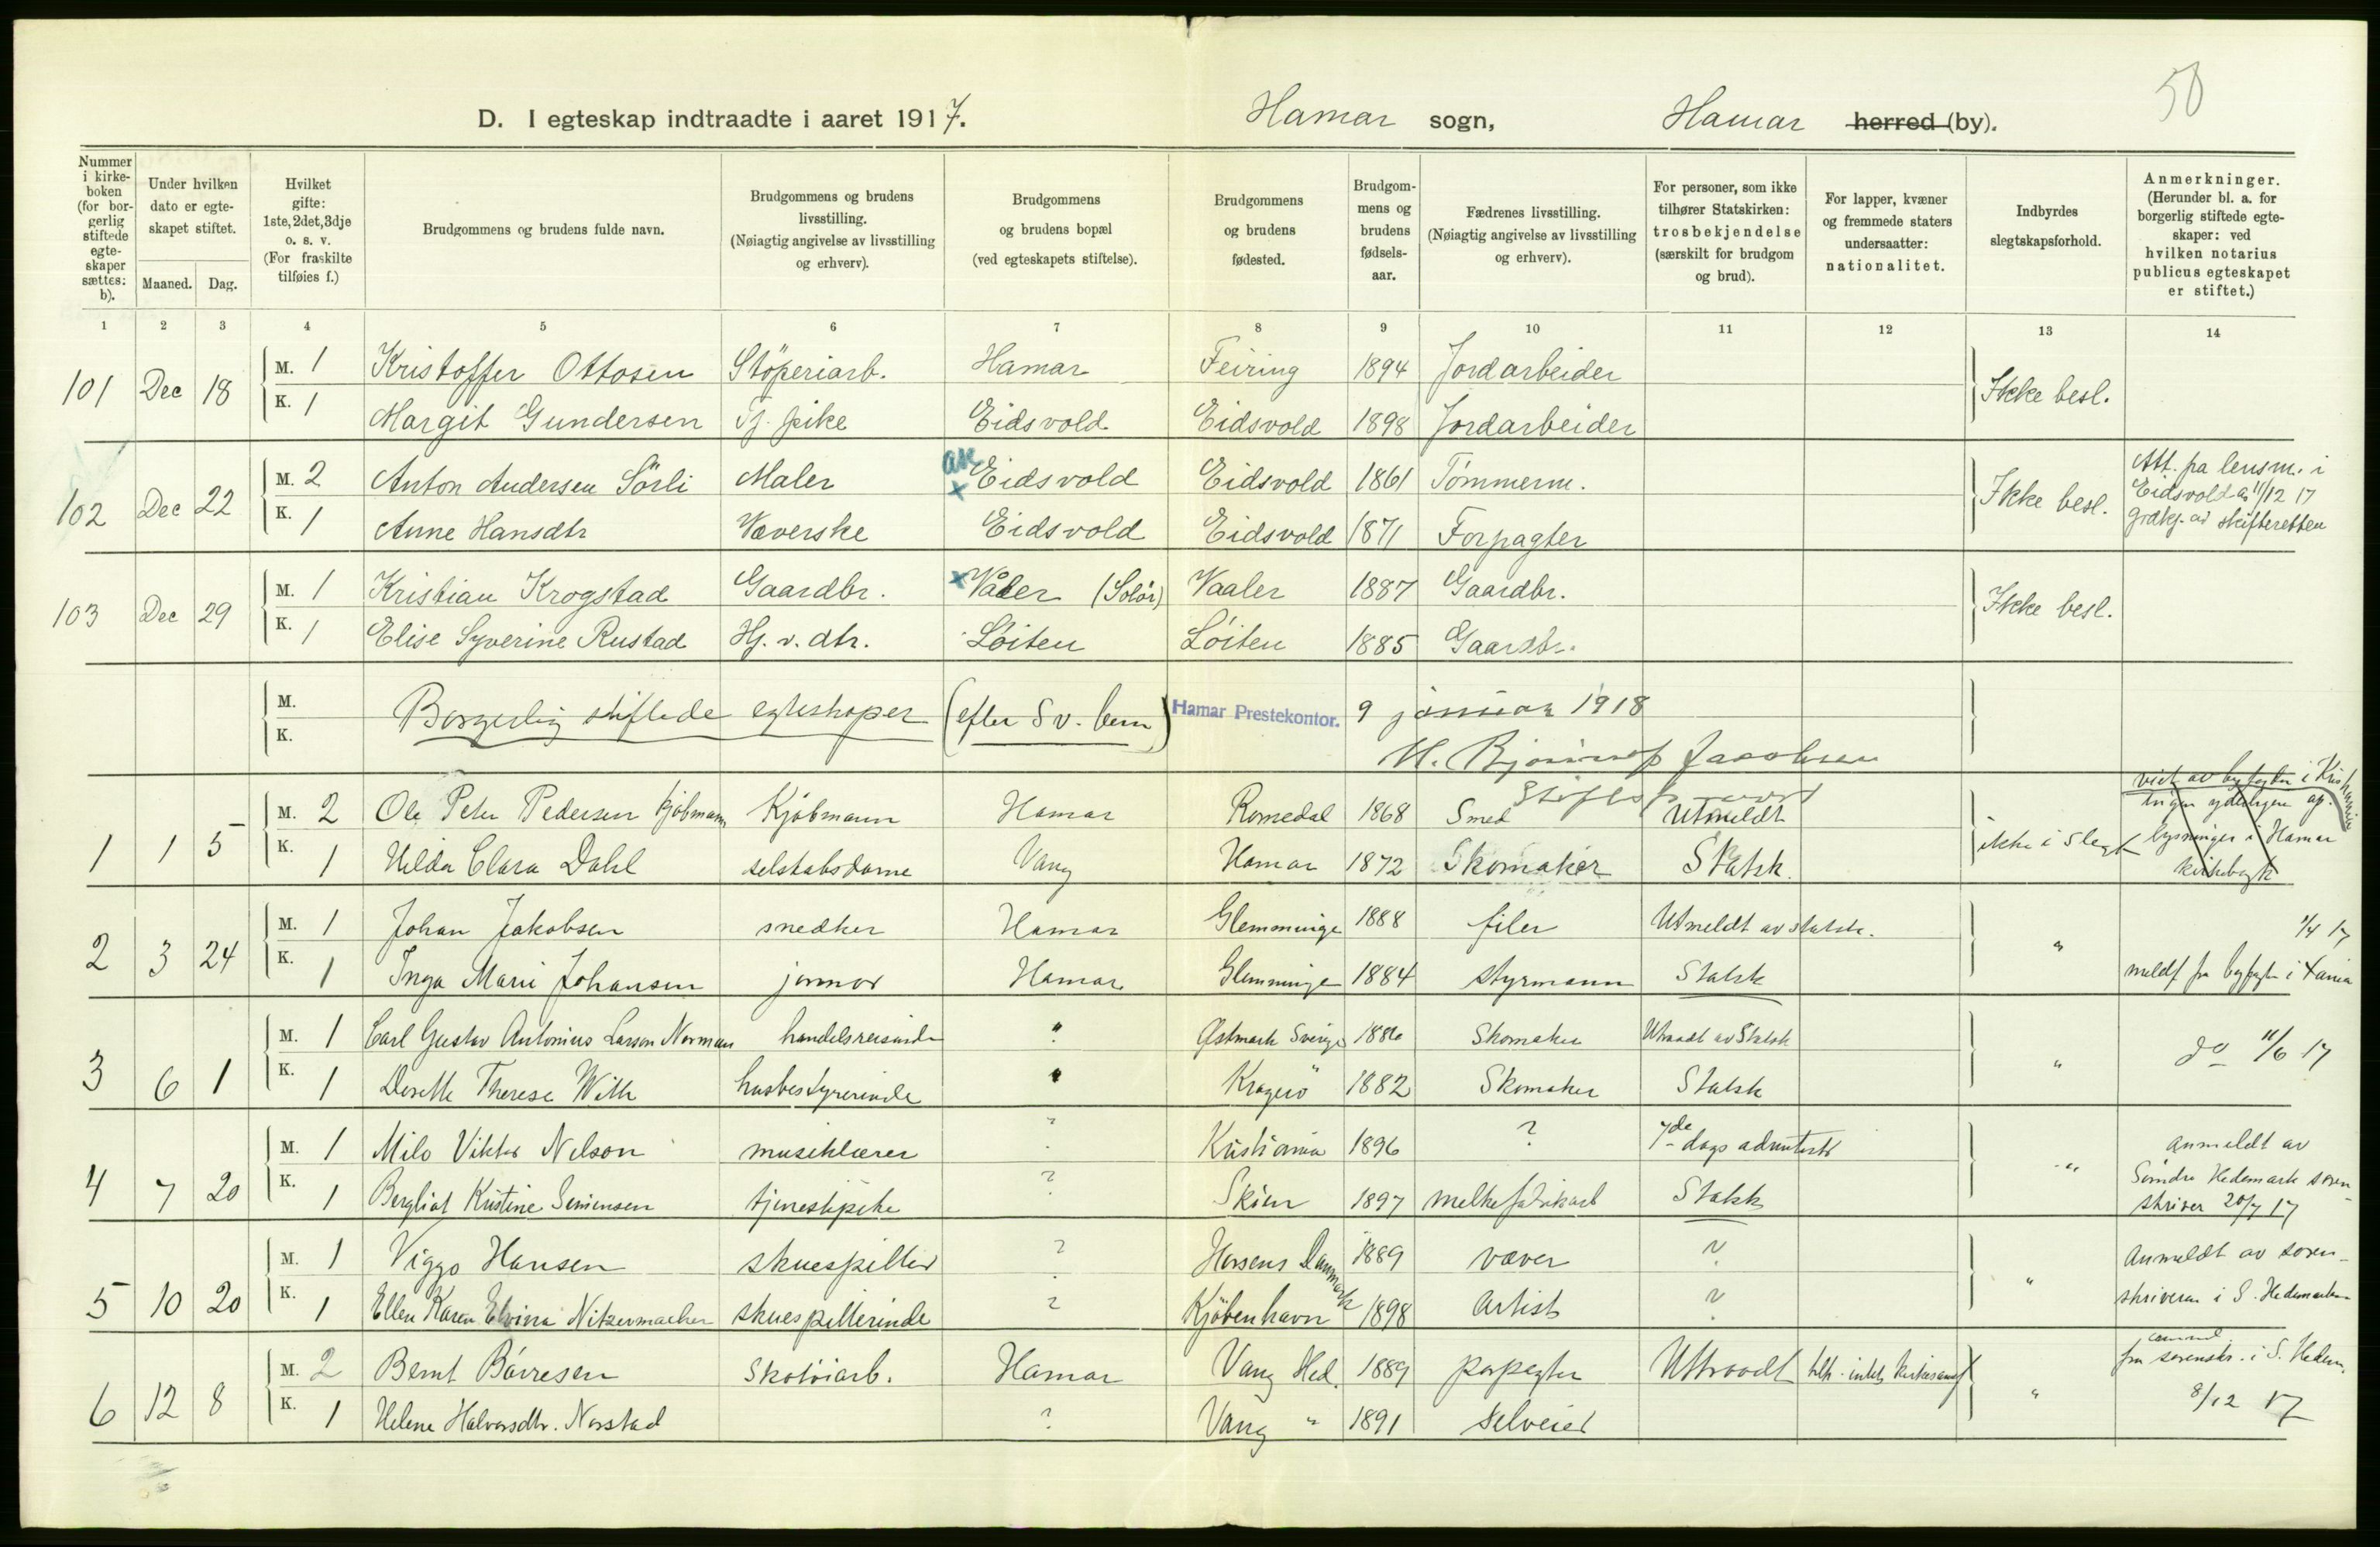 50
D. I egteskap indtraadte i aaret 1917. Hamar sogn, Hamar herred (by).
Nummer i kirkeboken (for borgerlig stiftede egteskaper sættes: b). Under hvilken dato er egteskapet stiftet. Maaned. Dag. Hvilket gifte: 1ste, 2det, 3dje o. s. v. (For fraskilte tilføies f.) Brudgommens og brudens fulde navn. Brudgommens og brudens livsstilling. (Nøiagtig angivelse av livsstilling og erhverv). Brudgommens og brudens bopæl (ved egteskapets stiftelse). Brudgommens og brudens fødested. Brudgommens og brudens fødselsaar. Fædrenes livsstilling. (Nøiagtig angivelse av livsstilling og erhverv). For personer, som ikke tilhører Statskirken: trosbekjendelse (særskilt for brudgom og brud). For lapper, kvæner og fremmede staters undersaatter: nationalitet. Indbyrdes slegtskapsforhold. Anmerkninger. (Herunder bl. a. for borgerlig stiftede egteskaper: ved hvilken notarius publicus egteskapet er stiftet.)
1 2 3 4 5 6 7 8 9 10 11 12 13 14
101 Dec 18 M. 1 Kristoffer Ottosen Støperiarb. Hamar Feiring 1894 Jordarbeider Ikke besl.
K. 1 Margit Gundersen Tj. pike Eidsvold Eidsvold 1898 Jordarbeider
102 Dec 22 M. 2 Anton Andersen Sörli Maler Eidsvold Eidsvold 1861 Tömmerm. Ikke besl. Att. fra lensm. i Eidsvold 11/12 17
K. 1 Anne Hansdtr Væverske Eidsvold Eidsvold 1871 Forpagter skifteretten
103 Dec 29 M. 1 Kristian Krogstad Gaardbr. Våler (Solør) Vaaler 1887 Gaardbr. Ikke besl.
K. 1 Elise Syverine Rustad Hj. v. dtr. Löiten Löiten 1885 Gaardbr.
M. K. Borgerlig stiftede egteskaper (efter Sv. bem) Hamar Prestekontor. 9 januar 1918
Jacobsen
1 1 5 M. 2 Ole Peter Pedersen kjøbmann Kjøbmann Hamar Romedal 1868 Smed Utmeldt ikke i slegt viet av byfogden i Kristiania
K. 1 Hilda Clara Dahl selskabsdame Vang Hamar 1872 Skomaker Statsk. lysninger i Hamar
2 3 24 M. 1 Johan Jakobsen snedker Hamar Glemminge 1888 filer Utmeldt av statsk. " 11/4 17
K. 1 Inga Marie Johansen jormor Hamar Glemminge 1884 styrmann Statsk meldt fra byfogden i
3 6 1 M. 1 Carl Gustav Antonius Larson Norman handelsreisende " Østmark Sverige 1886 Skomaker Utraadt av Statsk " do 11/6 17
K. 1 Dorette Therese With husbestyrerinde " Kragerö 1882 Skomaker Statsk
4 7 20 M. 1 Milo Viktor Nelson musiklærer ? Kristiania 1896 ? 7de dags adventist " Anmeldt av Söndre Hedemark soren-
K. 1 Bergliot Kristine Simensen tjenestepike ? Skien 1897 melkefabrikarb Statsk skriver 20/7 17
5 10 20 M. 1 Viggo Hansen skuespiller ? Horsens Danmark 1889 væver ? " Anmeldt av soren-
K. 1 Ellen Karen Elvina Nitzermacher skuespillerinde ? Kjøbenhavn 1898 Artist ? skriveren i S. Hedemarken
6 12 8 M. 2 Bernt Börresen Skotöiarb. Hamar Vang Hed. 1889 forpagter Uttraadt tilh. intet kirkesamf " fra sorenskr. i S. Hedem.
K. 1 Helene Halvorsdtr. Norstad ? Vang " 1891 selveier 8/12 17